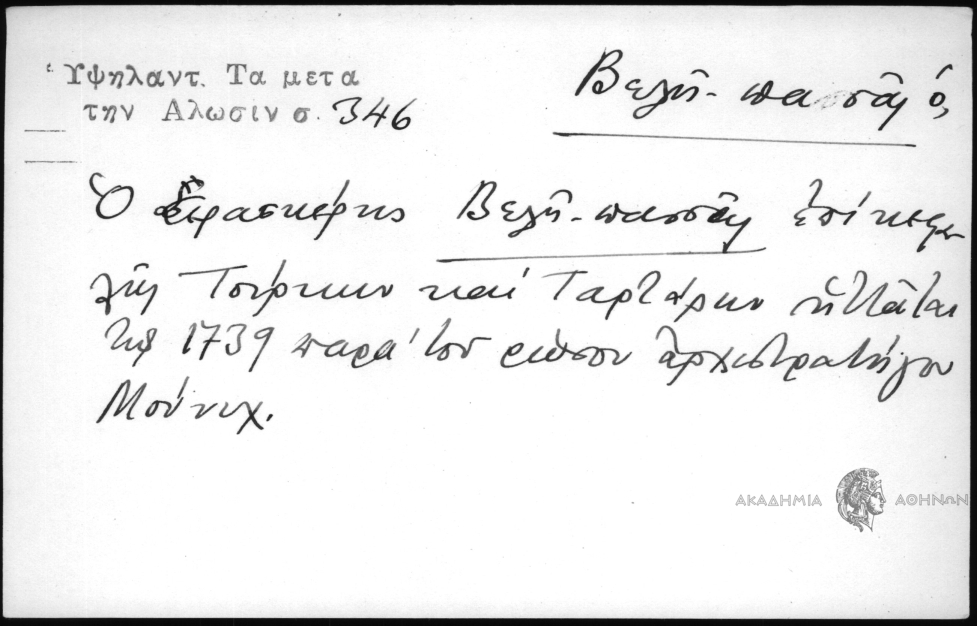 Ὑψηλαντ. Τα μετα
την Αλωσιν σ. 346
Βελῆ-πασσᾶς ὁ,
Ὁ σερασκέρης Βελῆ-πασσᾶς ἐπί κεφα-
λῆς Τούρκων καί Ταρτάρων ἡττᾶται
τῷ 1739 παρά τοῦ ρώσου ἀρχιστρατήγου
Μούνιχ.
ΑΚΑΔΗΜΙΑ ΑΘΗΝΩΝ